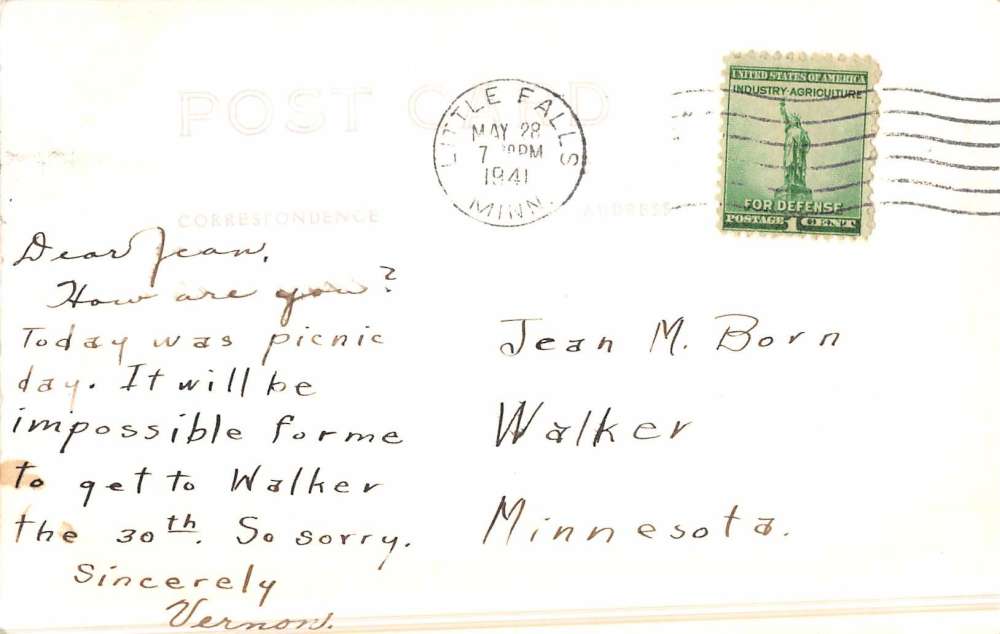 POST CARD
LITTLE FALLS
MAY 28
7 PM
1941
MINN.
UNITED STATES OF AMERICA
INDUSTRY·AGRICULTURE
FOR DEFENSE
POSTAGE 1 CENT
CORRESPONDENCE
ADDRESS
Dear Jean,
How are you?
Today was picnic
day. It will be
impossible for me
to get to Walker
the 30th. So sorry.
Sincerely
Vernon.
Jean M. Born
Walker
Minnesota.